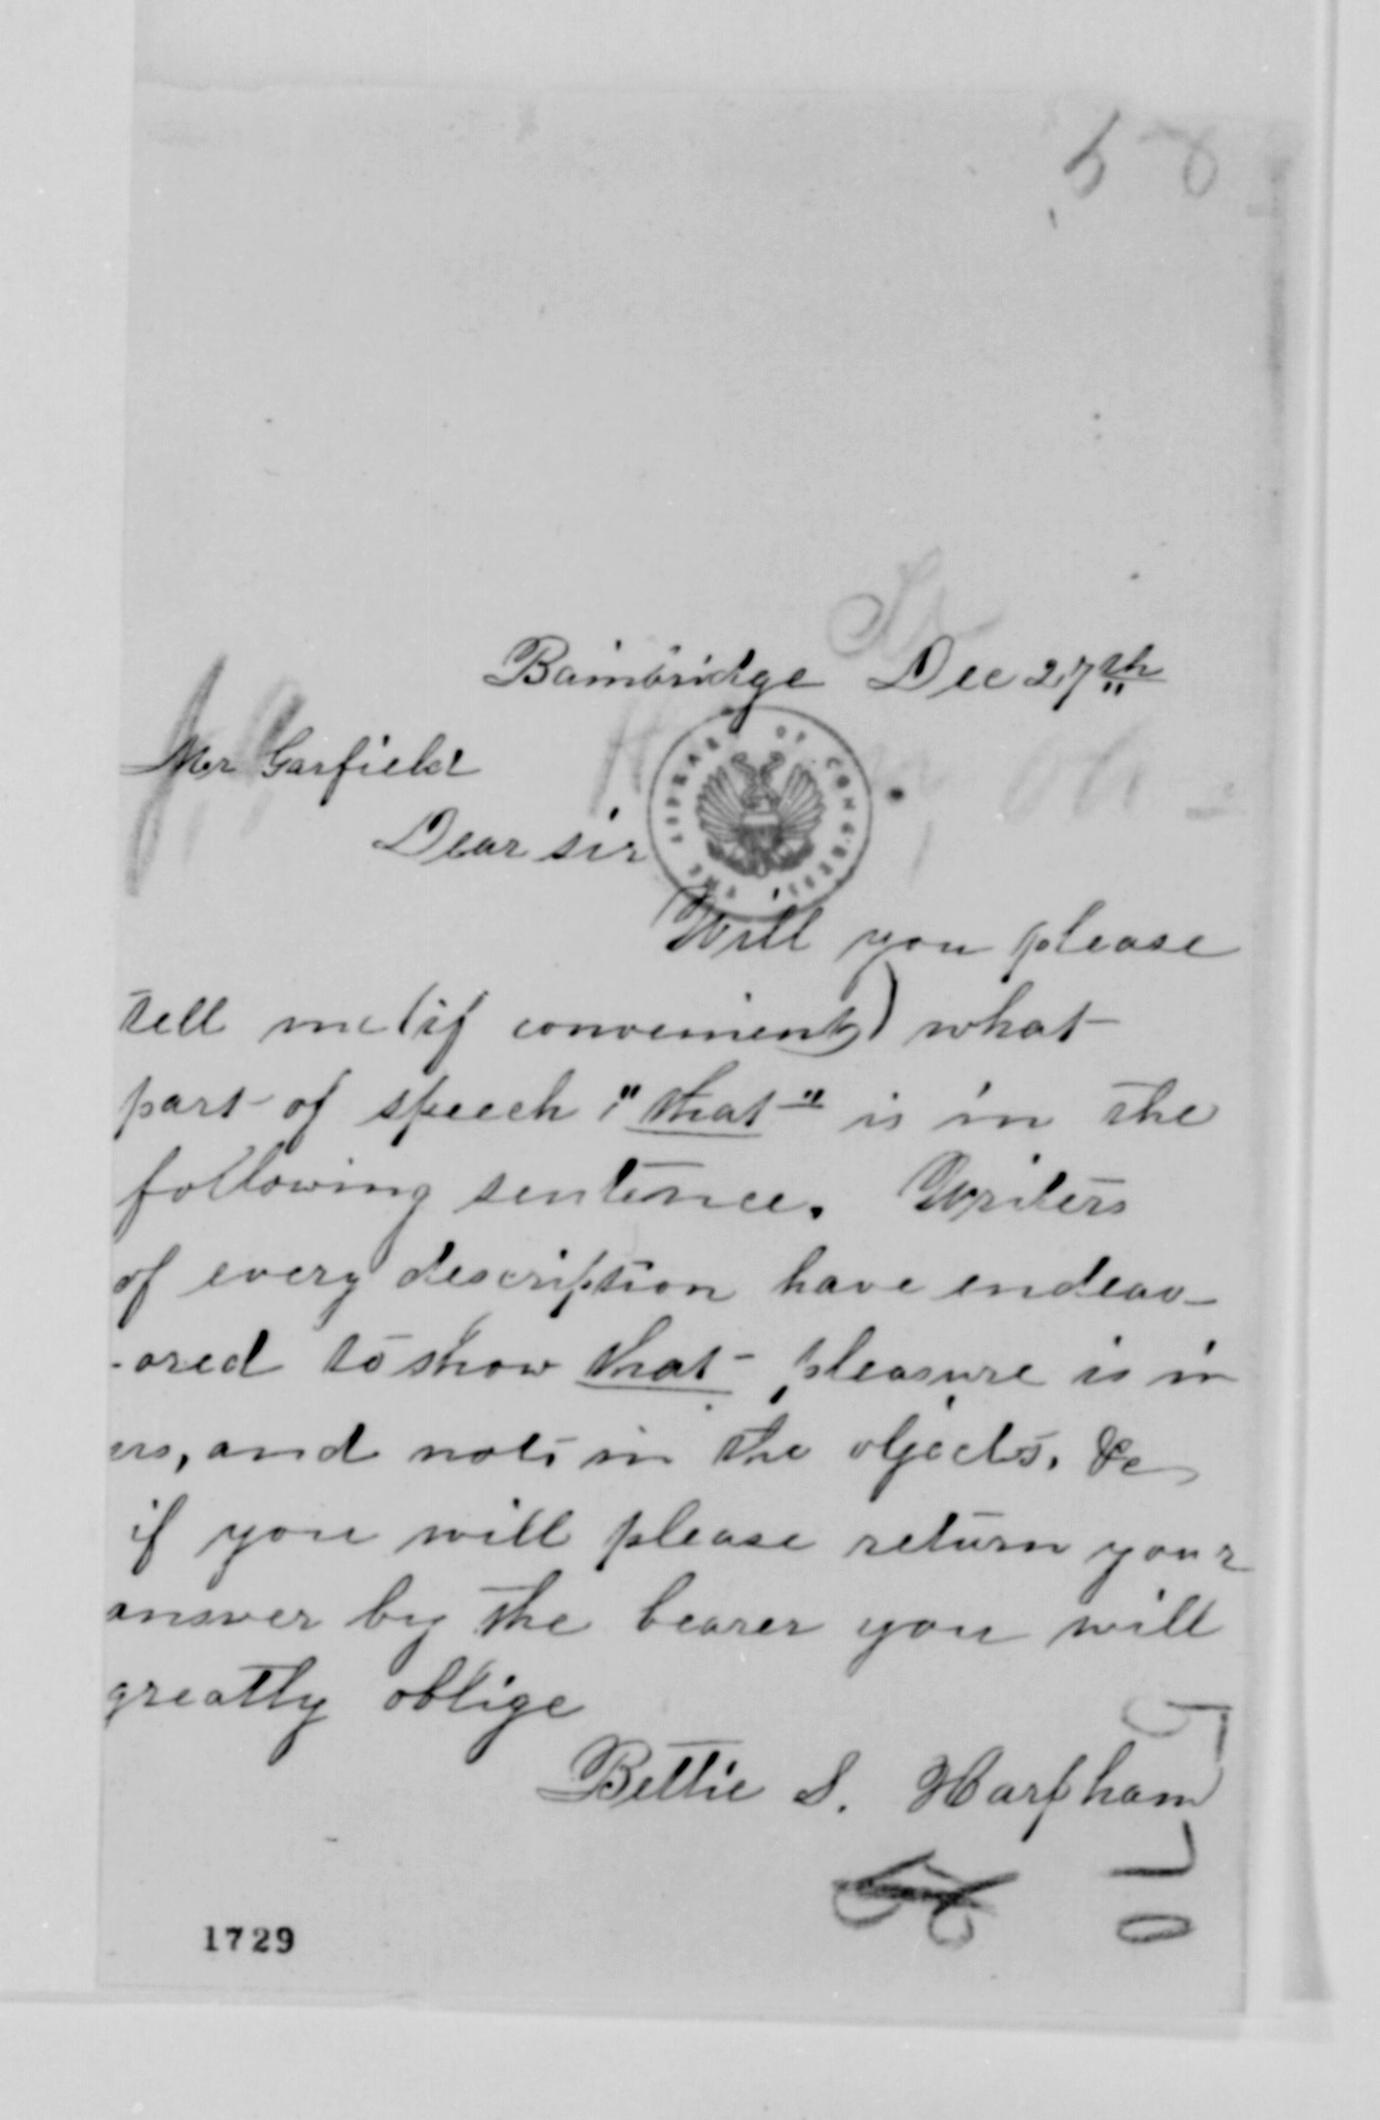 58
Bainbridge Dec 27th
Mr Garfield
Dear sir
THE LIBRARY OF CONGRESS
Will you please
tell me (if convenient) what
part of speech "that" is in the
following sentence. Writers
of every description have endeav-
-ored to show that pleasure is in
us, and not in the objects. &c
if you will please return your
answer by the bearer you will
greatly oblige
Bettie S. Harpham
1729